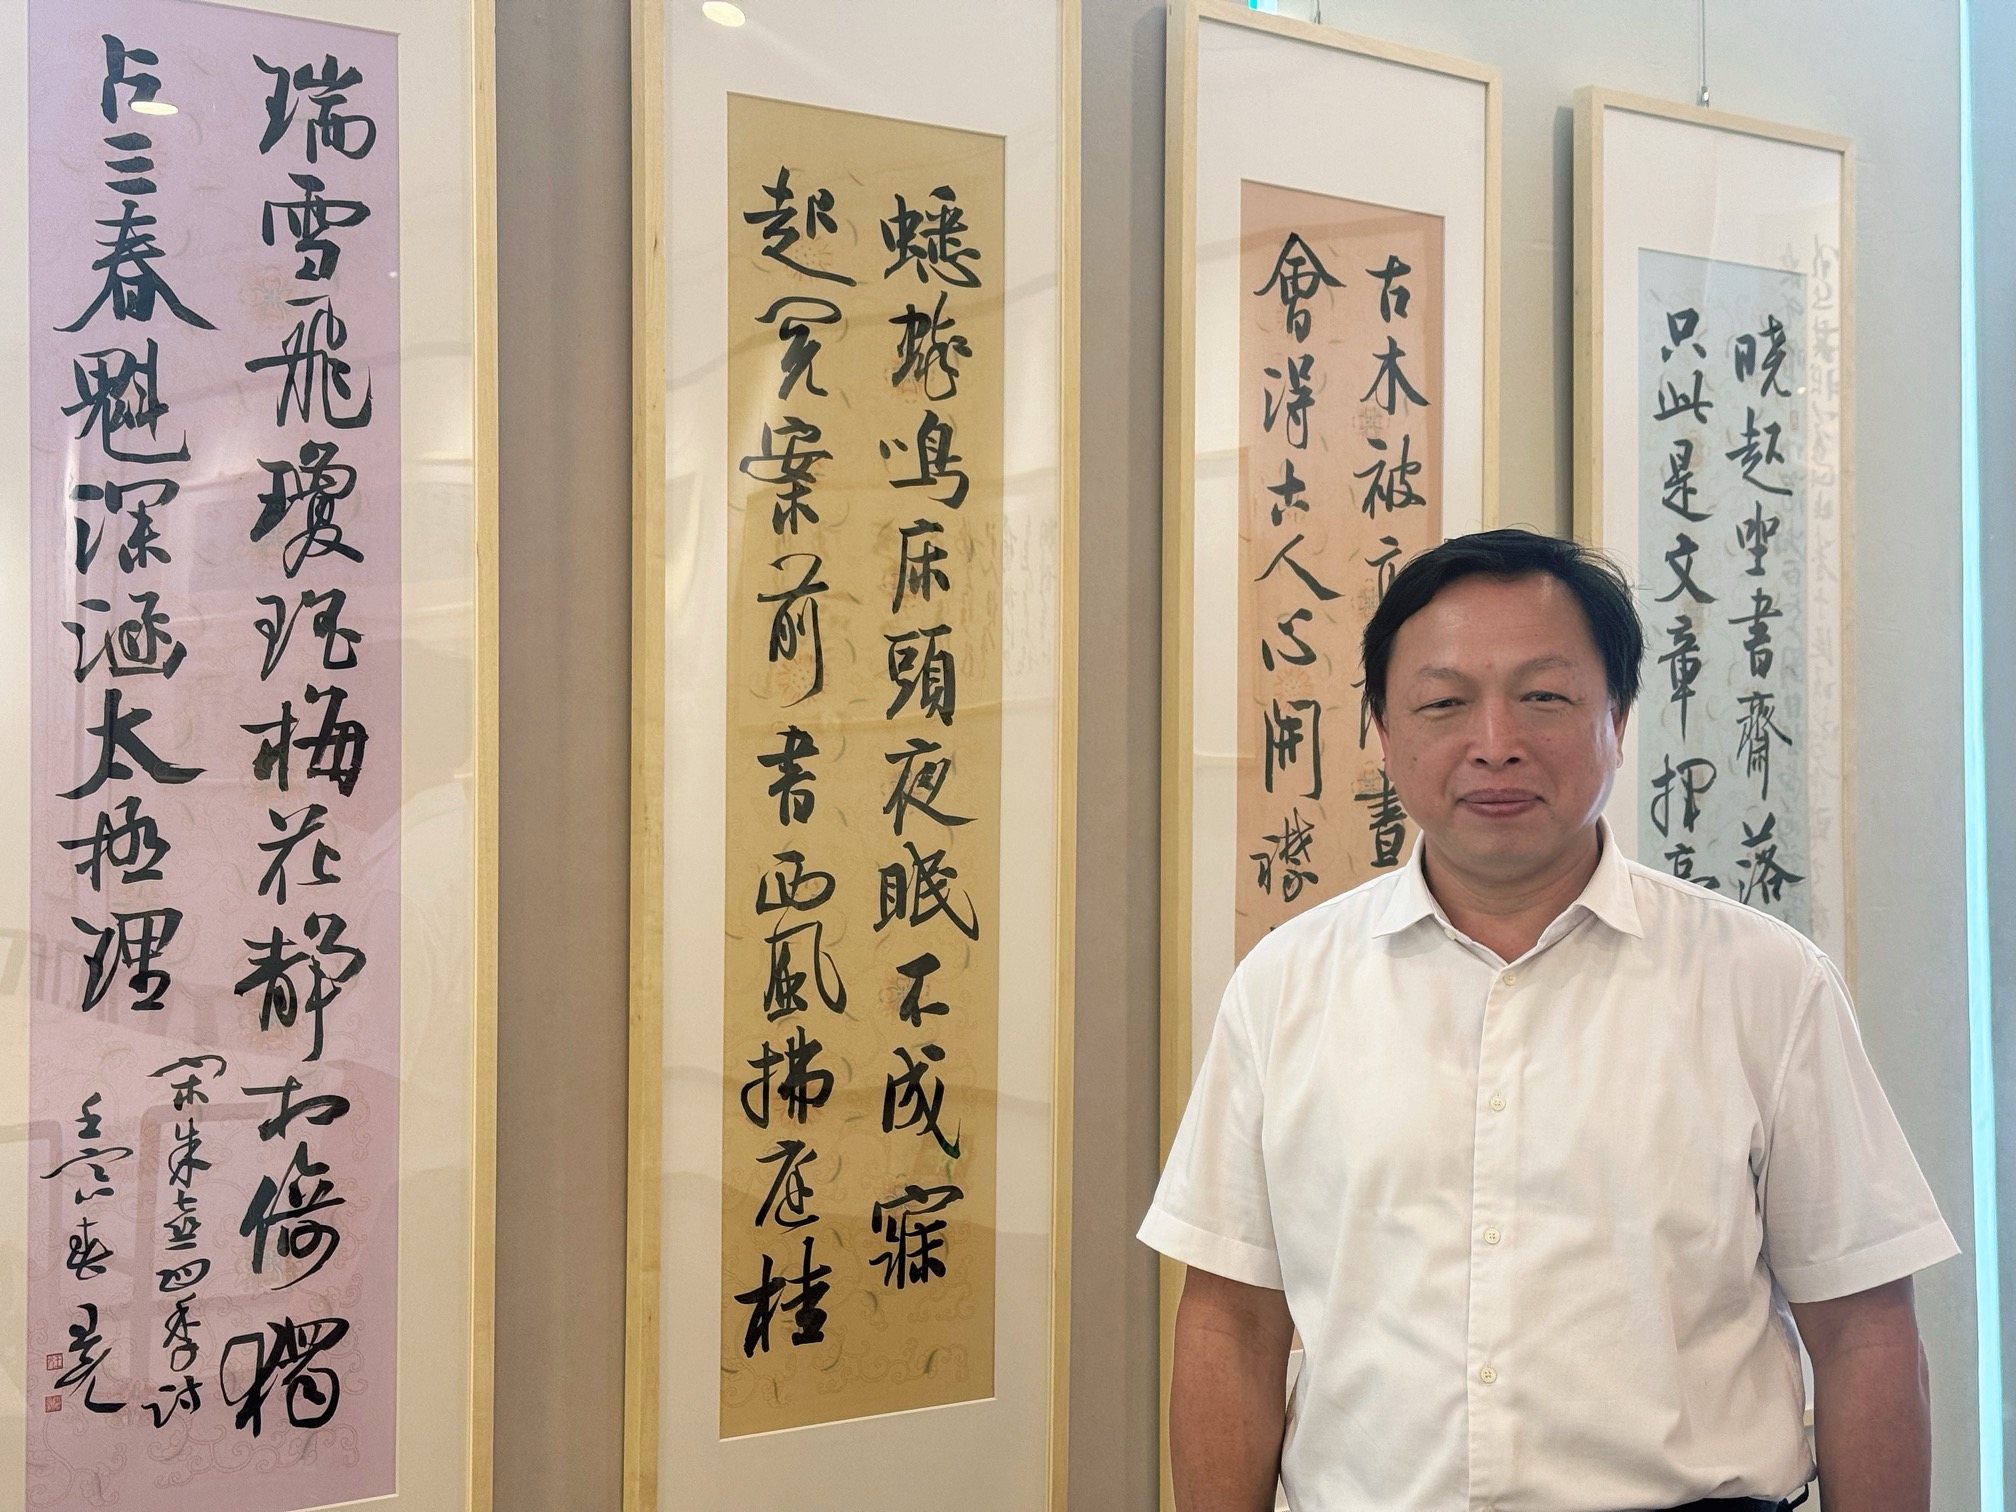 晓起坐書齋落
只此是文章揮
古木被高
晝
會得古人心開襟
蟋蟀鳴床頭夜眠不成寐
起閱案前書西風拂庭桂
瑞雪飛瓊瑤梅花靜相倚獨
占三春魁深涵太極理
宋朱熹四季詩
壬寅春晃